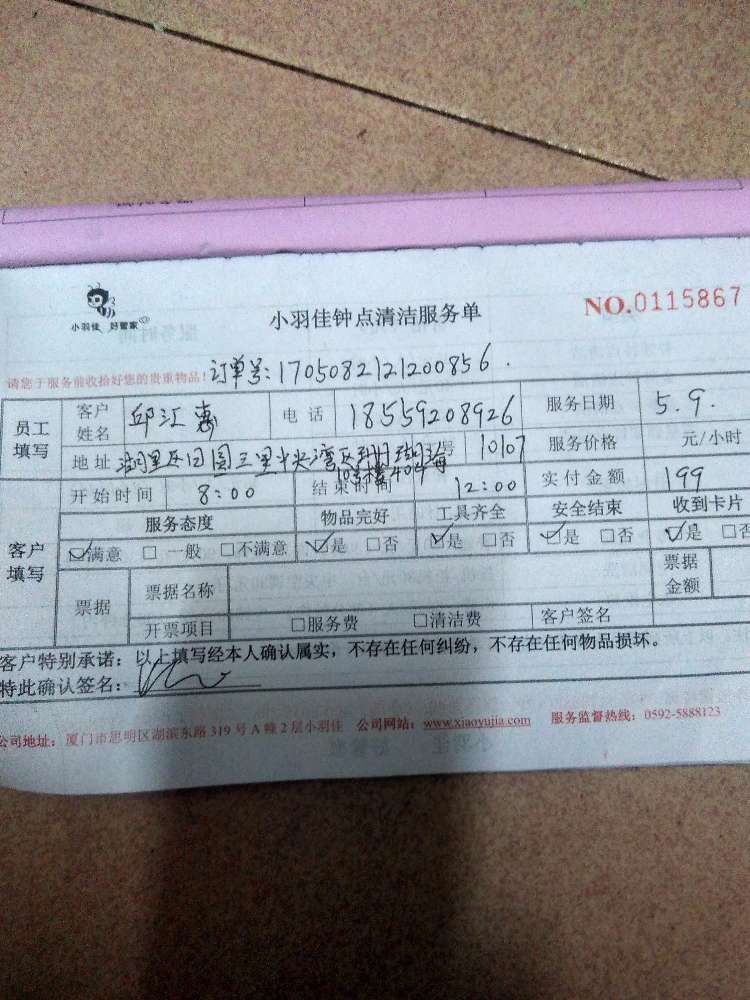 小羽佳 好管家
小羽佳钟点清洁服务单
NO.0115867
请您于服务前收拾好您的贵重物品！ 订单号：1705082121200856.
员工填写 客户姓名 邱汇惠 电话 18559208926 服务日期 5.9.
地址 湖里区田圆三里中央湾区 号 10107 服务价格 元/小时
10号楼404
客户填写 开始时间 8:00 结束时间 12:00 实付金额 199
服务态度 物品完好 工具齐全 安全结束 收到卡片
☑满意 □一般 □不满意 ☑是 □否 ☑是 □否 ☑是 □否 ☑是 □否
票据 票据名称 票据金额
开票项目 □服务费 □清洁费 客户签名
客户特别承诺：以上填写经本人确认属实，不存在任何纠纷，不存在任何物品损坏。
特此确认签名：
公司地址：厦门市思明区湖滨东路319号A幢2层小羽佳 公司网站：www.xiaoyujia.com 服务监督热线：0592-5888123